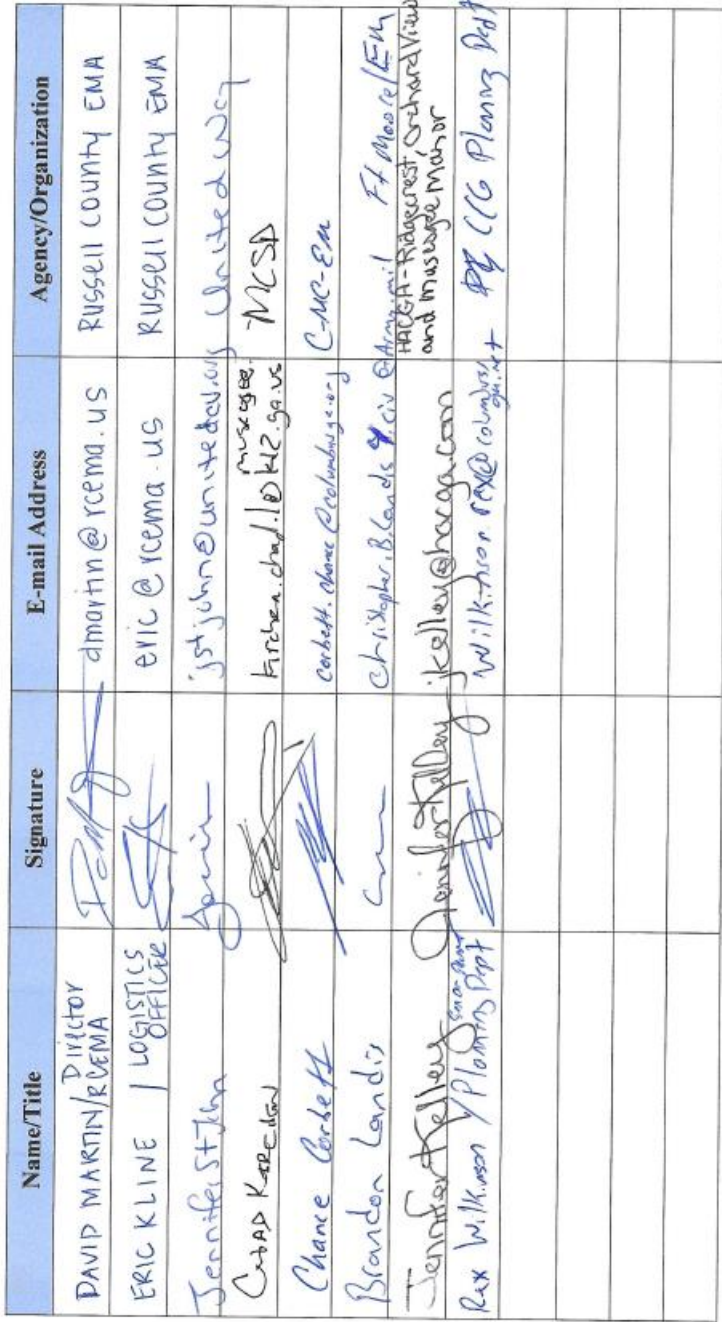 Name/Title Signature E-mail Address Agency/Organization
DAVID MARTIN/Director RCEMA dmartin@rcema.us RUSSEll COUNTY EMA
ERIC KLINE / LOGISTICS OFFICER eric@rcema.us RUSSEll COUNTY EMA
Jennifer St John jstjohn@unitedcv.org United Way
CHAD kirchen.chad.l@muscogee.k12.ga.us MCSD
Chance Corbett corbett.chance@columbusga.org C-MC-EM
Brandon Landis christopher.B.Landis.civ@Army.mil Ft Moore/EM
Jennifer Kelley Jennifer Kelley jkelley@hacga.com HACGA-Ridgecrest, Orchard View and Muscogee Manor
Rex Wilkinson / Planning Dept Wilkinson.rex@columbusga.net CCG Planning Dept